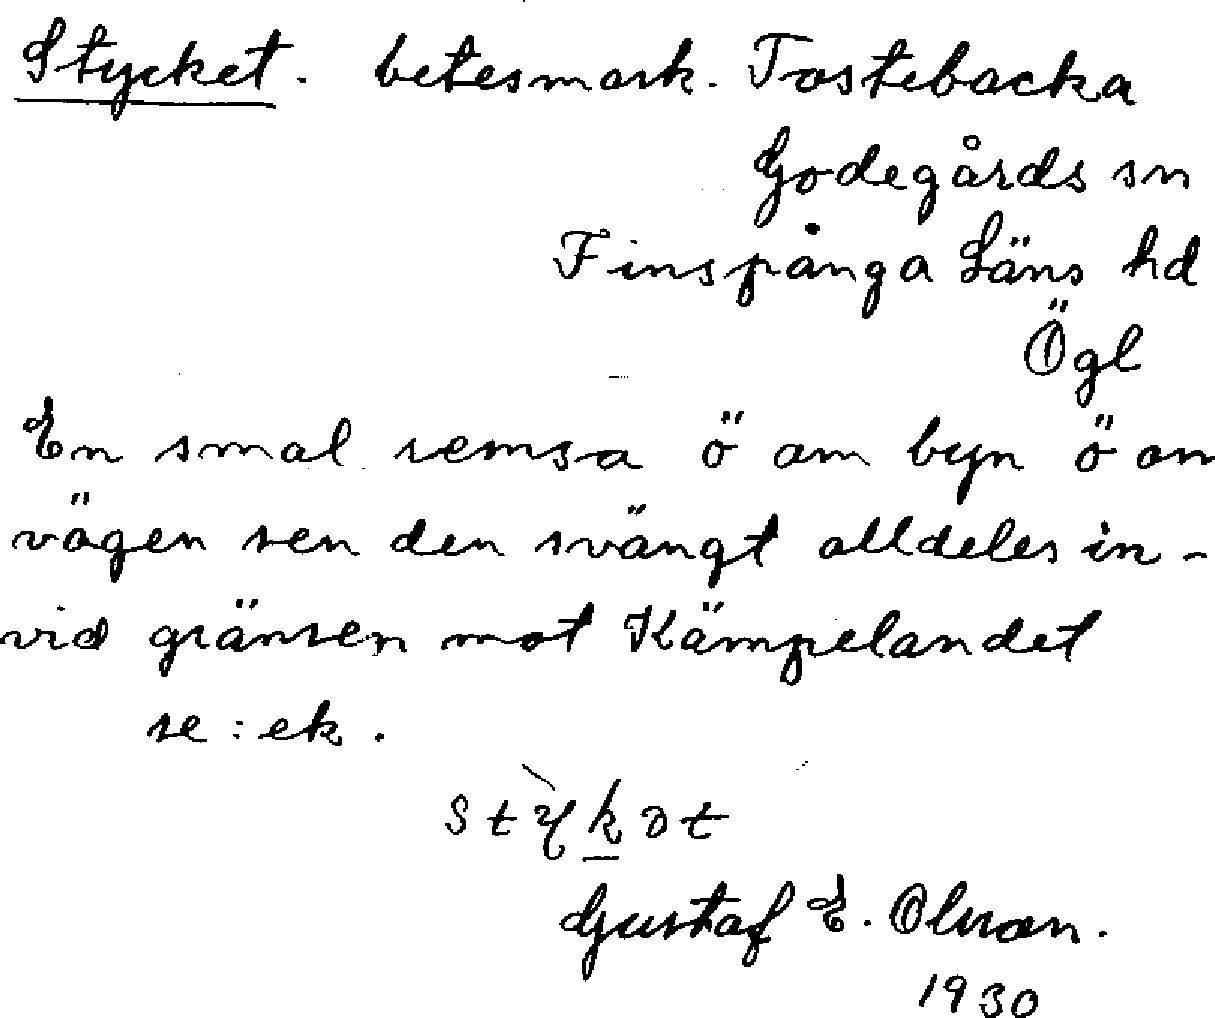 Stycket. betesmark. Tostebacka
Godegårds sn
Finspånga Läns hd
Ögl
En smal remsa ö om byn ö om
vägen sen den svängt alldeles in-
vid gränsen mot Kämpelandet
se : ek.
stỳkət
Gustaf E. Olsson.
1930